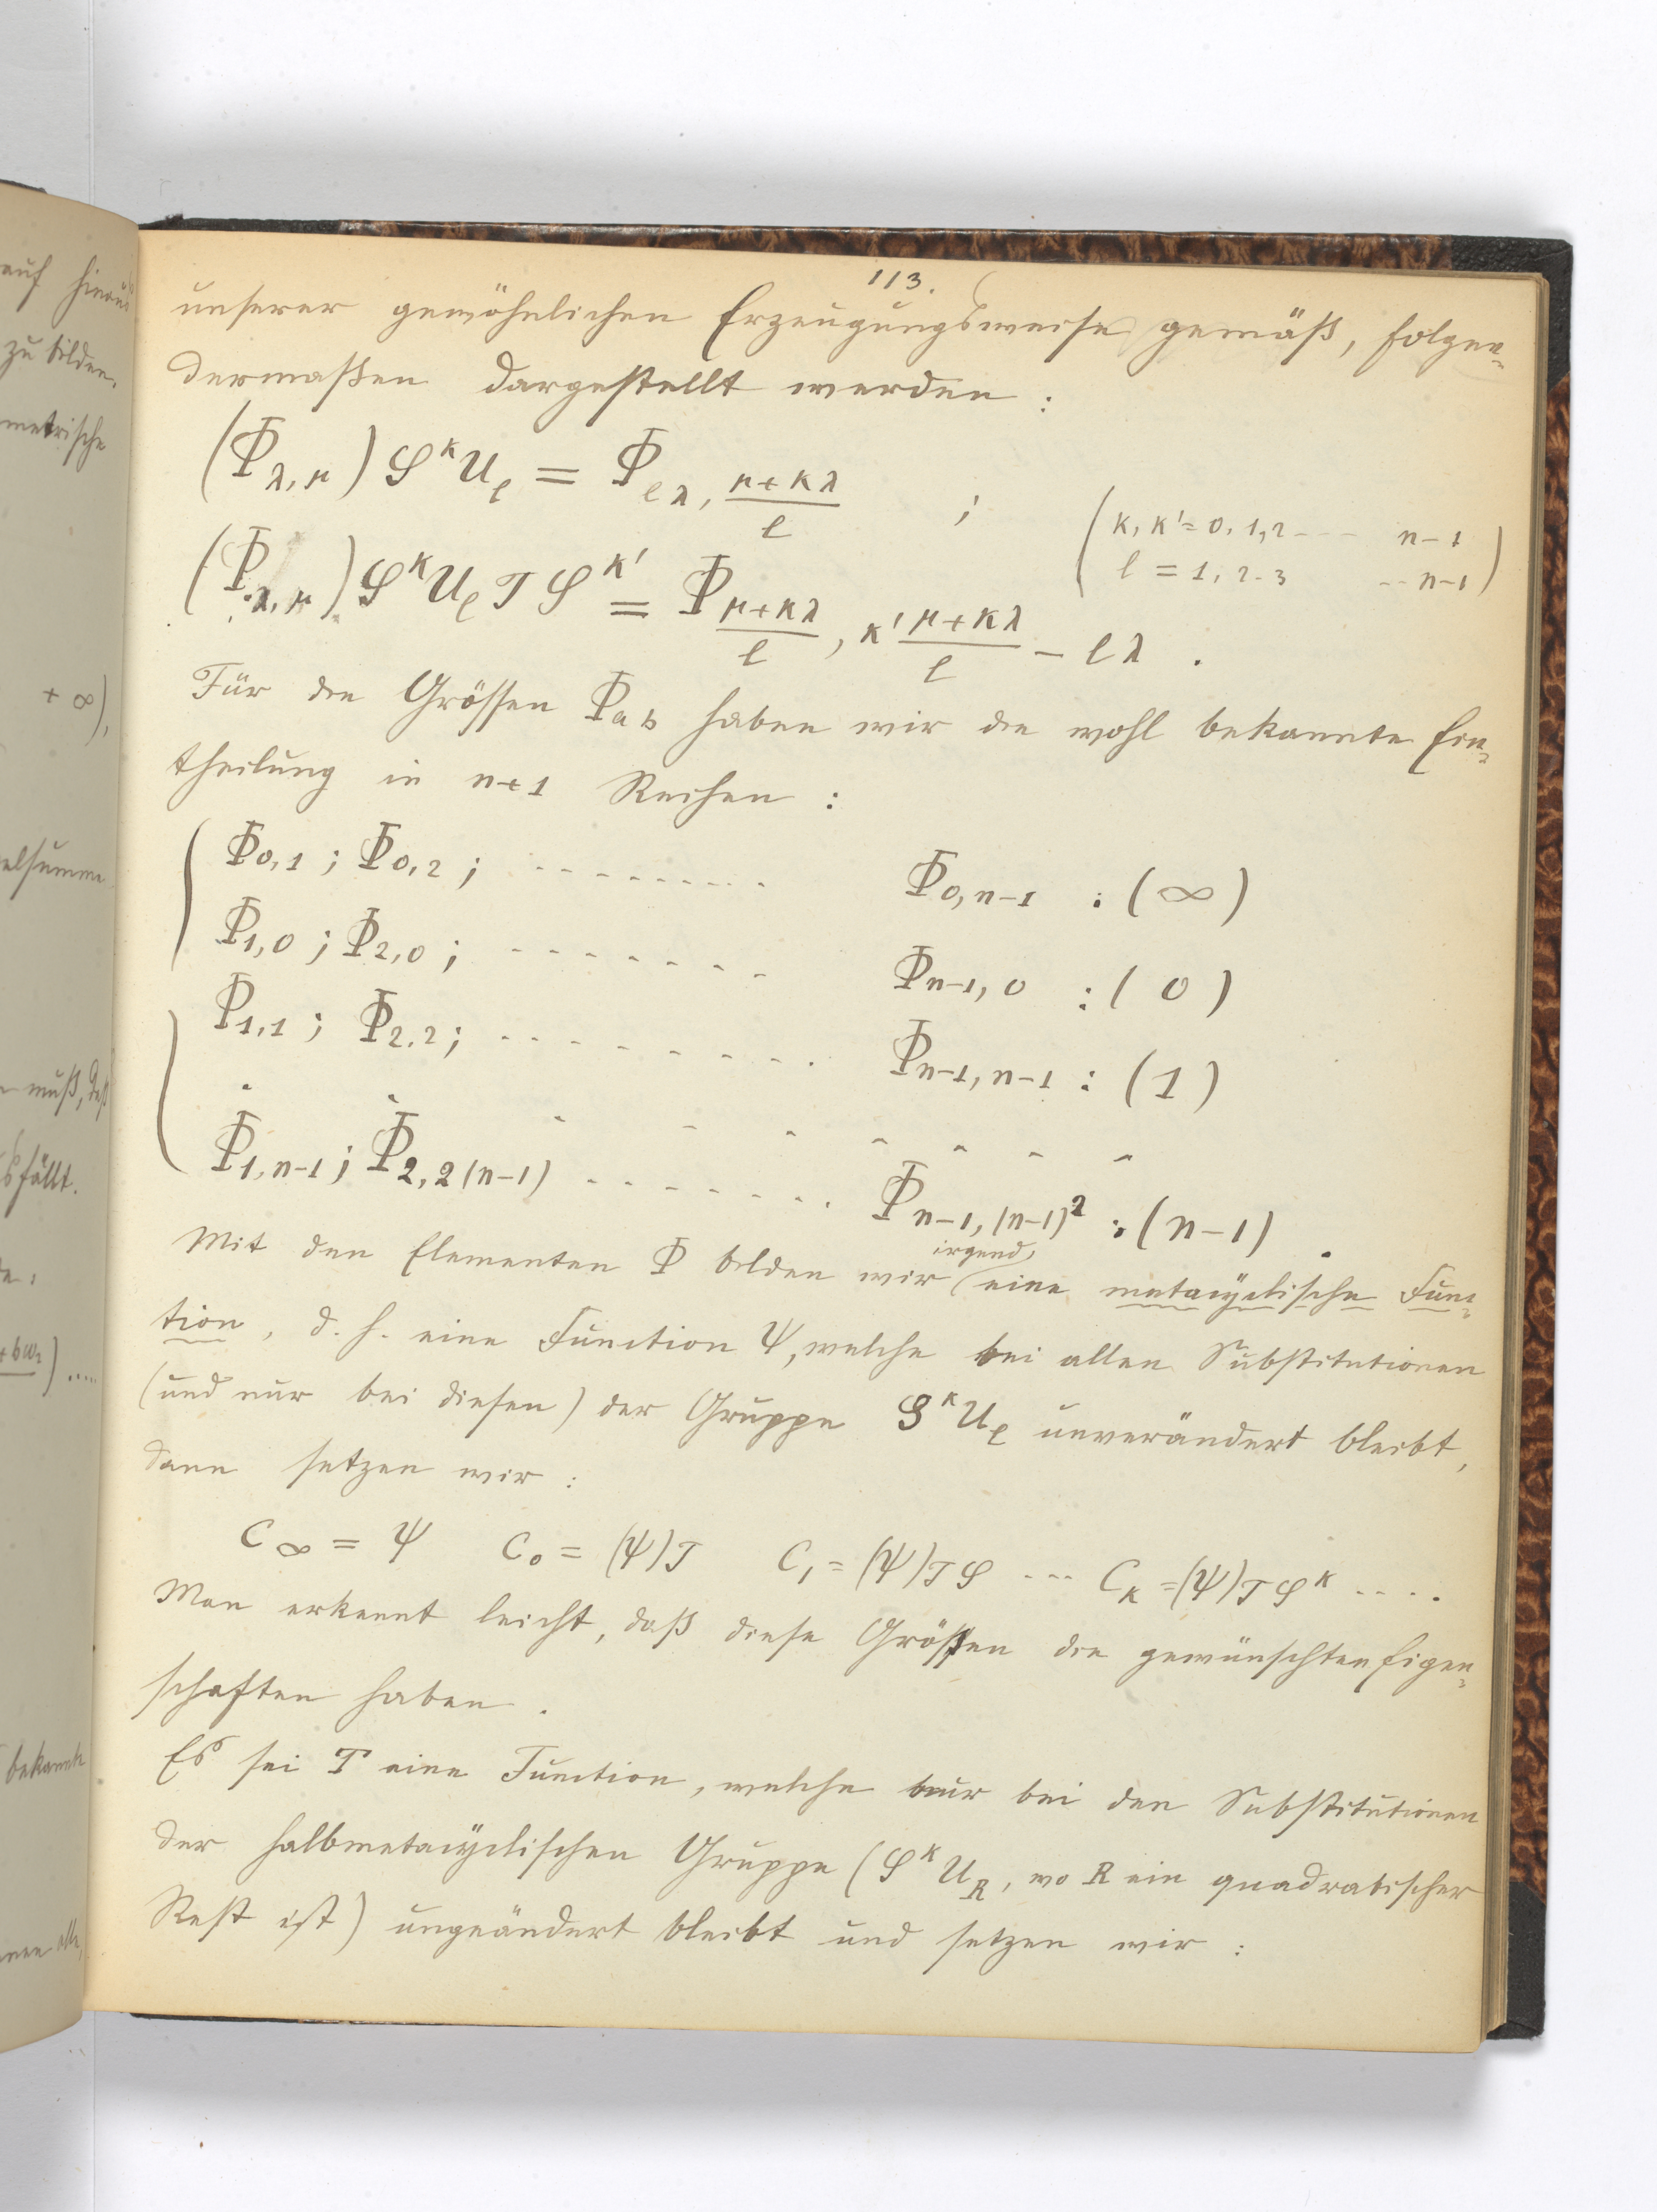 auf hinaus
zu bilden.
metrische
+ ∞),
elsumme
muß, daß
sfällt.
+bω₂) .....
bekannte
113.
unserer gewöhnlichen Erzeugungsweise gemäß, folgen-
dermaßen dargestellt werden :
(Φ_{λ,μ}) S^κ U_l = Φ_{lλ, (μ+κλ)/l} ; (κ, κ' = 0, 1, 2 --- n-1
(Φ_{λ,μ}) S^κ U_l T S^{κ'} = Φ_{(μ+κλ)/l, κ'(μ+κλ)/l - lλ} . l = 1, 2. 3 -- n-1)
Für die Grössen Φ_{a b} haben wir die wohl bekannte Ein-
theilung in n+1 Reihen :
Φ_{0,1} ; Φ_{0,2} ; --------- Φ_{0,n-1} : (∞)
Φ_{1,0} ; Φ_{2,0} ; ------- Φ_{n-1,0} : (0)
Φ_{1,1} ; Φ_{2,2} ; --------- Φ_{n-1,n-1} : (1)
. . - - - - - - -
Φ_{1,n-1} ; Φ_{2,2(n-1)} ------- Φ_{n-1,(n-1)²} : (n-1) .
Mit den Elementen Φ bilden wir irgend eine metacyclische Func-
tion, d. h. eine Function Ψ, welche bei allen Substitutionen
(und nur bei diesen) der Gruppe S^κ U_l unverändert bleibt,
dann setzen wir :
C_∞ = Ψ C_0 = (Ψ)T C_1 = (Ψ)TS --- C_κ = (Ψ)TS^κ ....
Man erkennt leicht, daß diese Größen die gewünschten Eigen-
schaften haben .
Es sei T eine Function, welche nur bei den Substitutionen
der halbmetacyclischen Gruppe (S^κ U_R, wo R ein quadratischer
Rest ist) ungeändert bleibt und setzen wir :